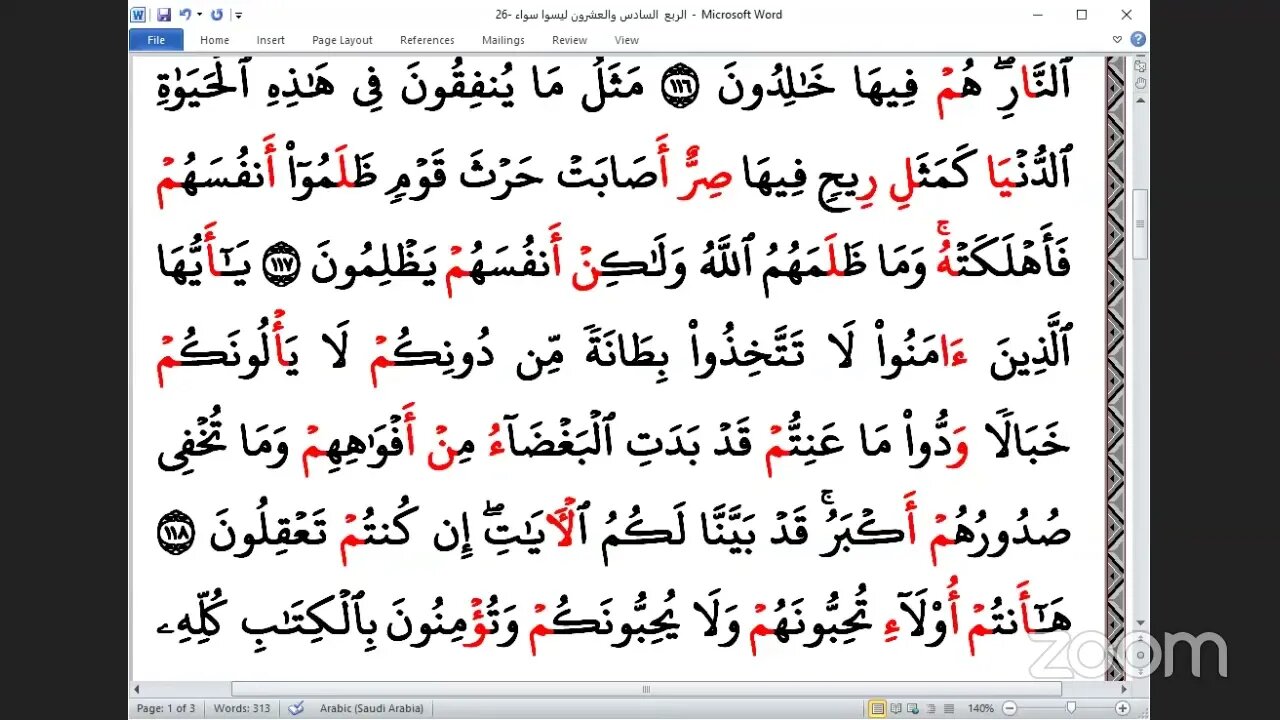 الربع السادس والعشرون ليسوا سواء -26 - Microsoft Word
File Home Insert Page Layout References Mailings Review View
ٱلنَّارِۖ هُمۡ فِيهَا خَٰلِدُونَ ١١٦ مَثَلُ مَا يُنفِقُونَ فِي هَٰذِهِ ٱلۡحَيَوٰةِ
ٱلدُّنۡيَا كَمَثَلِ رِيحٖ فِيهَا صِرٌّ أَصَابَتۡ حَرۡثَ قَوۡمٖ ظَلَمُوٓاْ أَنفُسَهُمۡ
فَأَهۡلَكَتۡهُۚ وَمَا ظَلَمَهُمُ ٱللَّهُ وَلَٰكِنۡ أَنفُسَهُمۡ يَظۡلِمُونَ ١١٧ يَٰٓأَيُّهَا
ٱلَّذِينَ ءَامَنُواْ لَا تَتَّخِذُواْ بِطَانَةٗ مِّن دُونِكُمۡ لَا يَأۡلُونَكُمۡ
خَبَالٗا وَدُّواْ مَا عَنِتُّمۡ قَدۡ بَدَتِ ٱلۡبَغۡضَآءُ مِنۡ أَفۡوَٰهِهِمۡ وَمَا تُخۡفِي
صُدُورُهُمۡ أَكۡبَرُۚ قَدۡ بَيَّنَّا لَكُمُ ٱلۡأٓيَٰتِۖ إِن كُنتُمۡ تَعۡقِلُونَ ١١٨
هَٰٓأَنتُمۡ أُوْلَآءِ تُحِبُّونَهُمۡ وَلَا يُحِبُّونَكُمۡ وَتُؤۡمِنُونَ بِٱلۡكِتَٰبِ كُلِّهِۦ
zoom
Page: 1 of 3 Words: 313 Arabic (Saudi Arabia) 140%